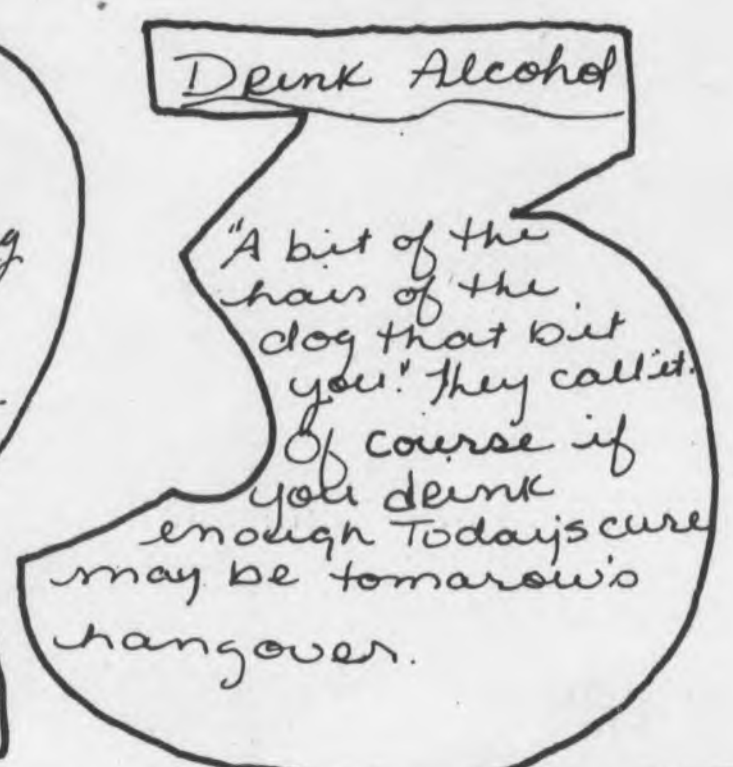 Drink Alcohol
"A bit of the
hair of the
dog that bit
you." They call it.
Of course if
you drink
enough Today's cure
may be tomarow's
hangover.